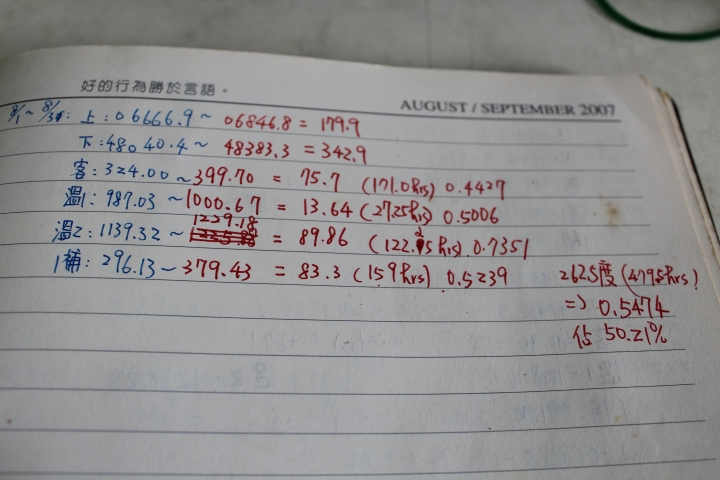 好的行為勝於言語。
AUGUST / SEPTEMBER 2007
8/1 ~ 8/31: 上: 06666.9 ~ 06846.8 = 179.9
下: 48040.4 ~ 48383.3 = 342.9
客: 324.00 ~ 399.70 = 75.7 (171.0hrs) 0.4427
溫1: 987.03 ~ 1000.67 = 13.64 (27.25hrs) 0.5006
溫2: 1139.32 ~ 1229.18 = 89.86 (122.25hrs) 0.7351
1補: 296.13 ~ 379.43 = 83.3 (159hrs) 0.5239
262.5度 (479.5hrs)
=> 0.5474
佔 50.21%